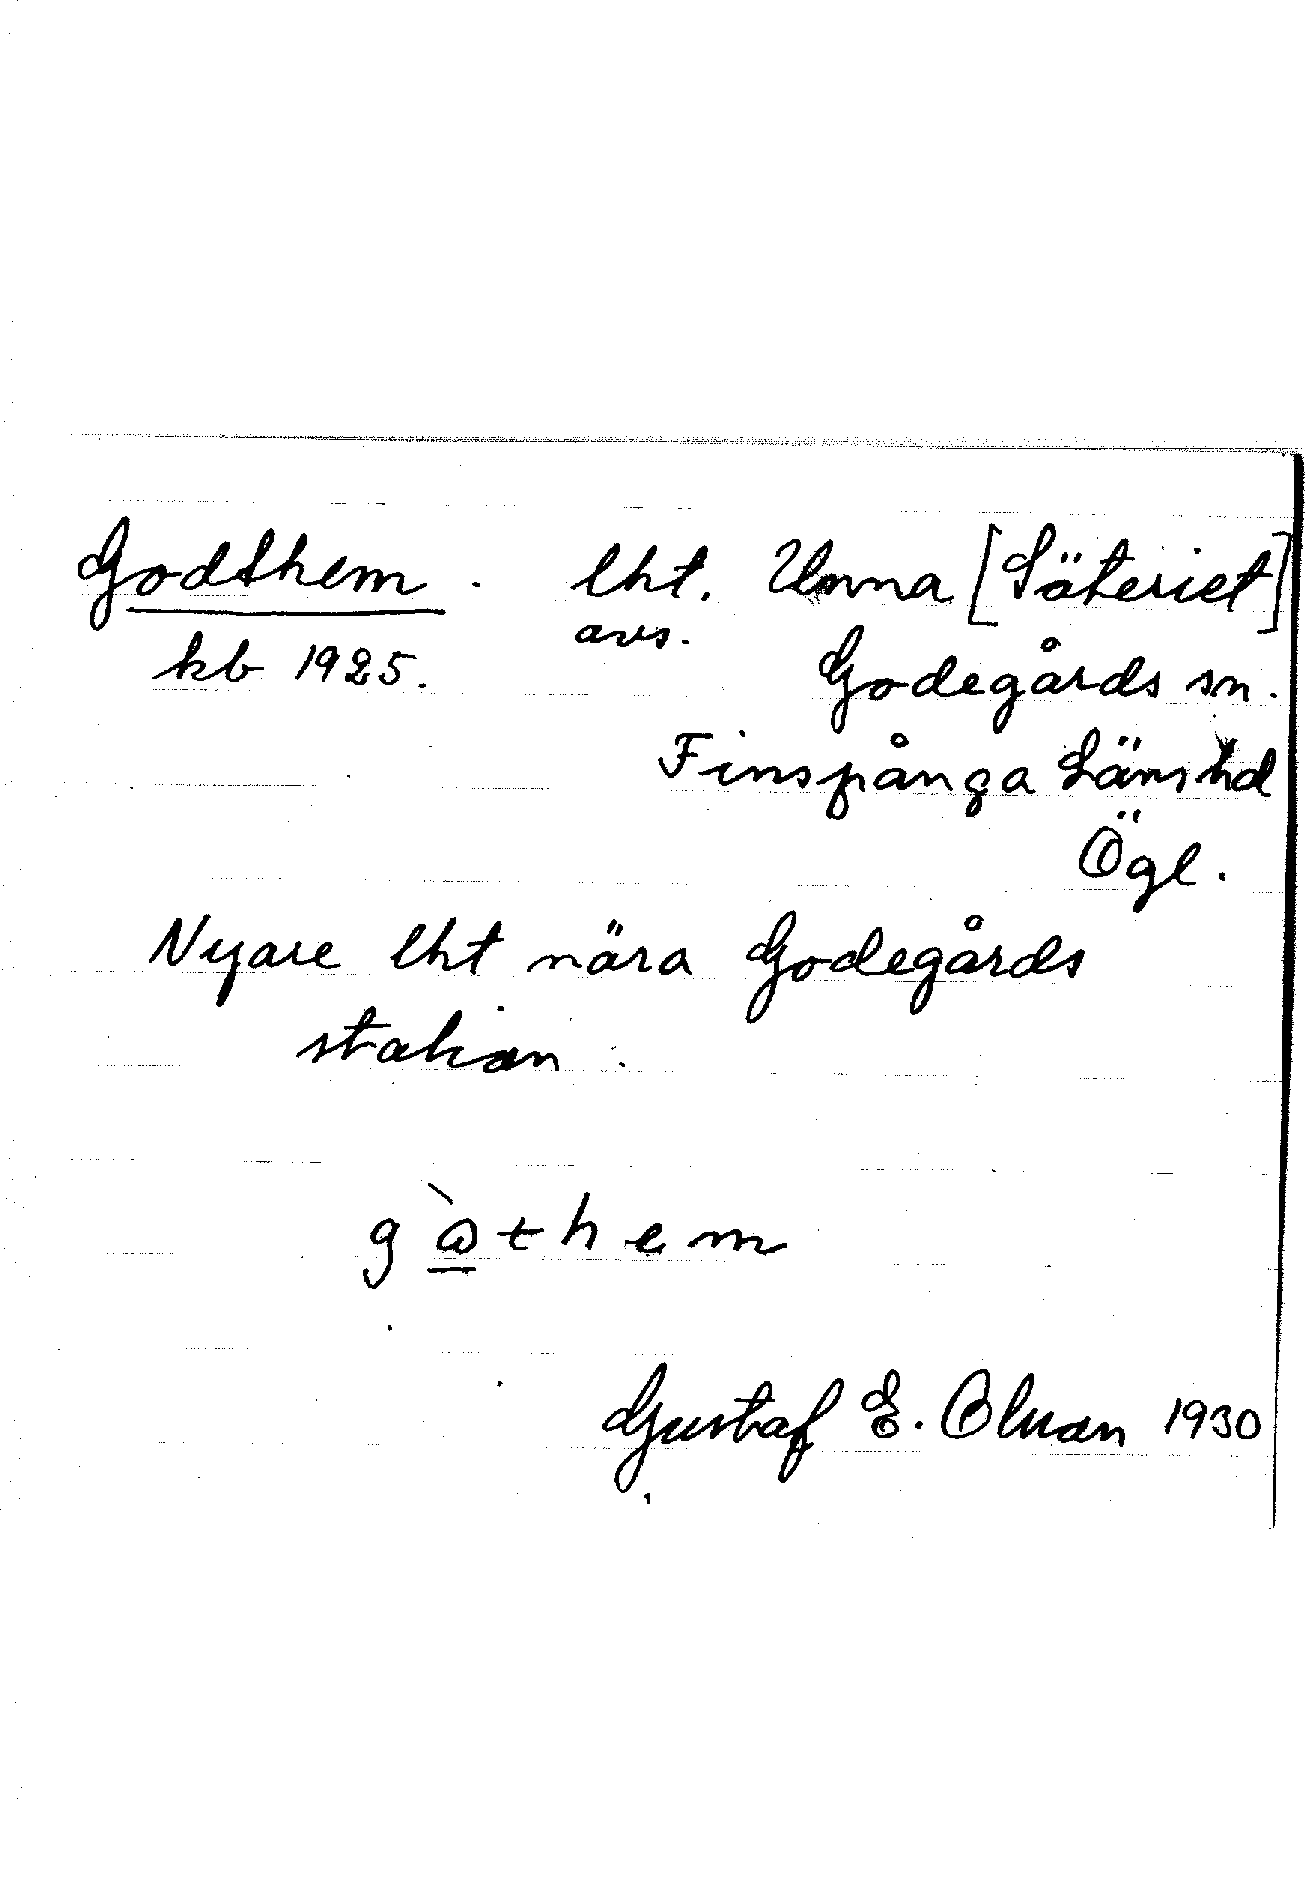 Godthem. lht. Unna [Säteriet]
kb 1925. avs. Godegårds sn.
Finspånga Länshd
Ögl.
Nyare lht nära Godegårds
station.
g ὼ̲ t h e m
Gustaf E. Olsson 1930